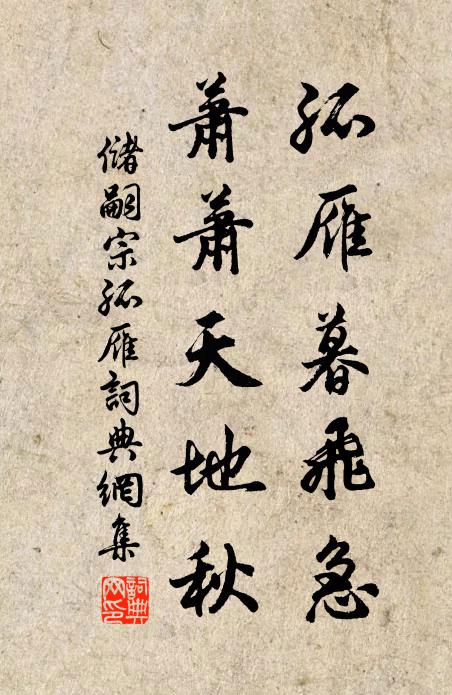 孤雁暮飛急
蕭蕭天地秋
儲嗣宗孤雁詞典網集
詞典网印